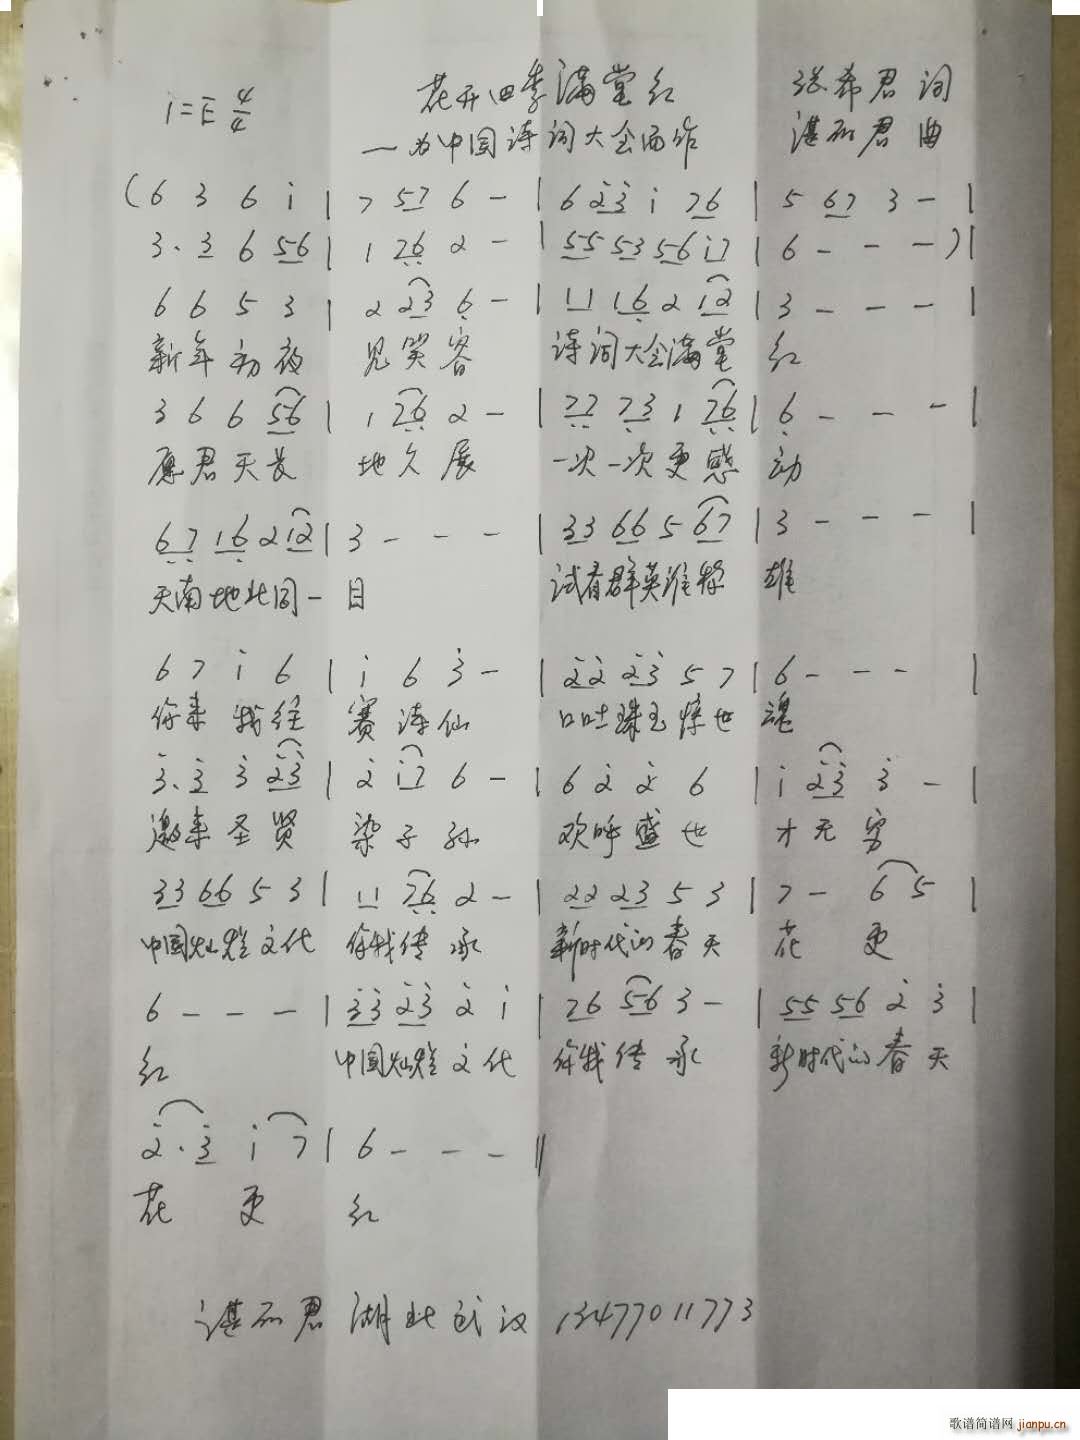 花开四季满堂红 张希君 词
1=E 4/4 —为中国诗词大会而作 谌 君 曲
(6 3 6 i | 7 57 6 - | 6 23 i 76 | 5 67 3 - |
3. 3 6 56 | 1 76 2 - | 55 53 56 i7 | 6 - - - )|
6 6 5 3 | 2 23 6 - | 11 16 2 12 | 3 - - - |
新年初夜 见笑容 诗词大会满堂 红
3 6 6 56 | 1 76 2 - | 77 73 1 76 | 6 - - - |
愿君天长 地久展 一次一次更感 动
67 16 2 12 | 3 - - - | 33 66 5 67 | 3 - - - |
天南地北同一 目 试看群英谁称 雄
6 7 i 6 | i 6 3 - | 22 23 5 7 | 6 - - - |
你来我往 赛诗仙 口吐珠玉惊世 魂
3. 3 3 23 | 2 i7 6 - | 6 2 2 6 | i 23 3 - |
邀来圣贤 染子孙 欢呼盛世 才无穷
33 66 5 3 | 11 76 2 - | 22 23 5 3 | 7 - 6 5 |
中国灿烂文化 你我传承 新时代的春天 花 更
6 - - - | 33 23 2 i | 76 56 3 - | 55 56 2 3 |
红 中国灿烂文化 你我传承 新时代的春天
2. 3 i 7 | 6 - - - ‖
花 更 红
谌 君 湖北武汉 13477011773
歌谱简谱网 jianpu.cn